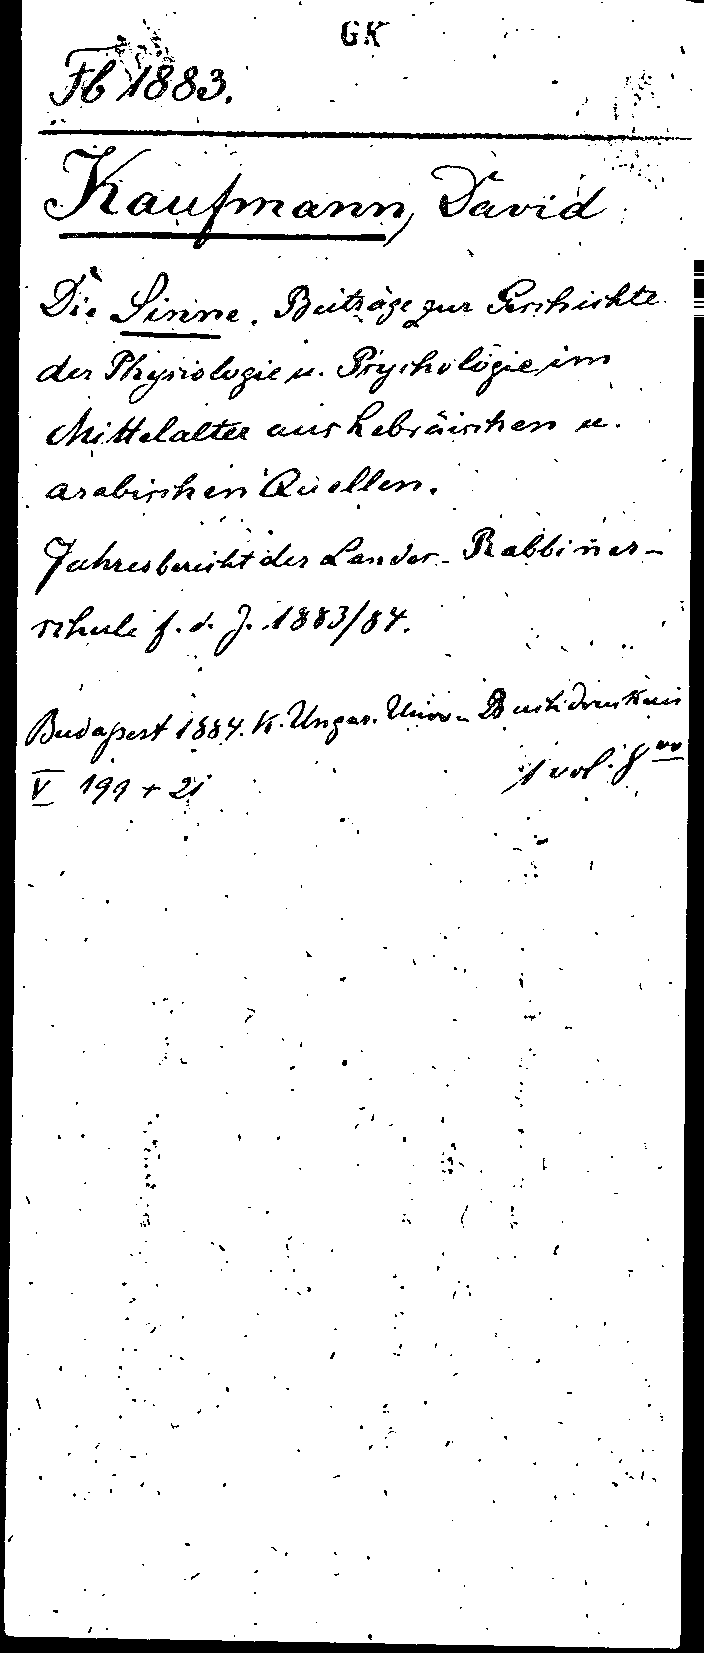 GK
Fb 1883.
Kaufmann, David
Die Sinne. Beiträge zur Geschichte
der Physiologie u. Psychologie im
Mittelalter aus hebräischen u.
arabischen Quellen.
Jahresbericht der Landes-Rabbiner-
schule f. d. J. 1883/84.
Budapest 1884. K. Ungar. Univ.-Buchdruckerei
V 199 + 21
1 vol. 8vo